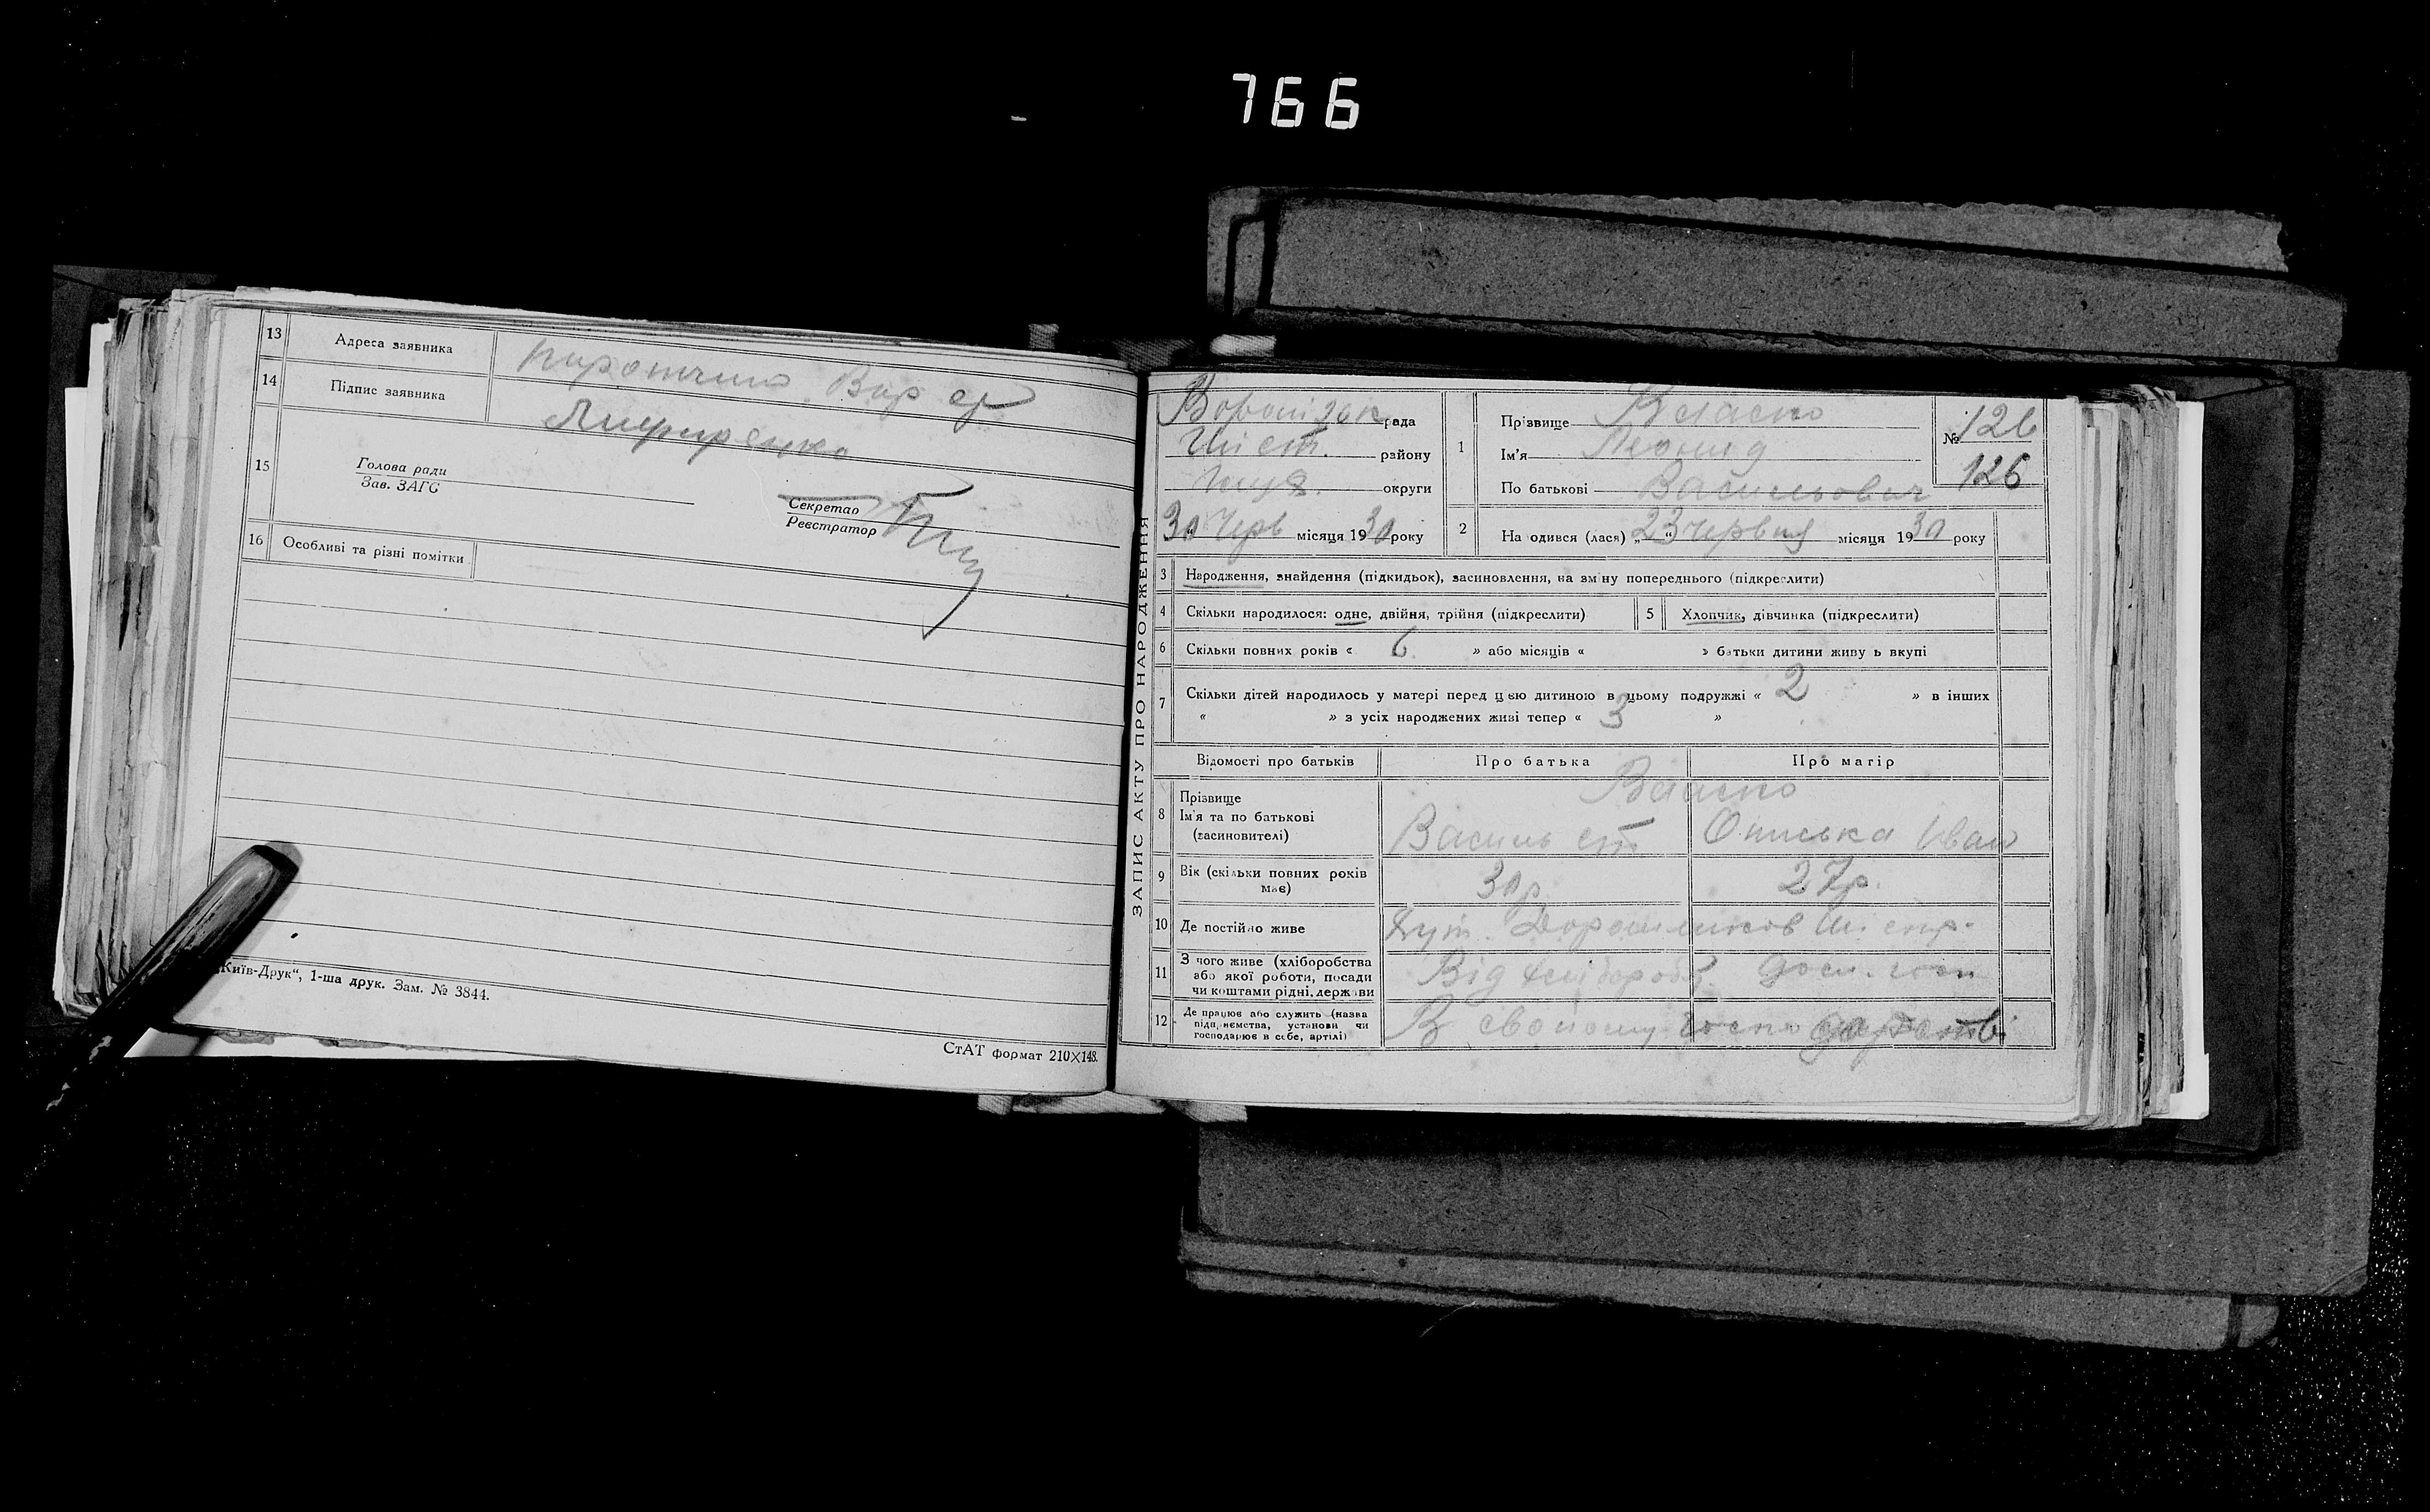 766
13 Адреса заявника
14 Підпис заявника
15 Голова ради
Зав. ЗАГС
Секретар
Реєстратор
16 Особливі та різні помітки
„Київ-Друк“, 1-ша друк. Зам. № 3844.
СтАТ формат 210×148.
ЗАПИС АКТУ ПРО НАРОДЖЕННЯ
рада
району
округи
30 Черв місяця 1930 року
1 Прізвище Власко
Ім'я Леонид
По батькові Васильович
№ 126
126
2 Народився (лася) „23“ червня місяця 1930 року
3 Народження, знайдення (підкидьок), засиновлення, на зміну попереднього (підкреслити)
4 Скільки народилося: одне, двійня, трійня (підкреслити)
5 Хлопчик, дівчинка (підкреслити)
6 Скільки повних років « 6 » або місяців « » батьки дитини живуть вкупі
7 Скільки дітей народилось у матері перед цією дитиною в цьому подружжі « 2 » в інших
« » з усіх народжених живі тепер « 3 »
Відомості про батьків Про батька Про матір
Власко
8 Прізвище
Ім'я та по батькові
(засновителі)
Василь ст Ониська Іван
9 Вік (скільки повних років має) 30 р. 27 р.
10 Де постійно живе Хут.
11 З чого живе (хліборобства
або якої роботи, посади
чи коштами рідні, держави
Від хлібороб дом. госп
12 Де працює або служить (назва
підприємства, установи чи
господарює в себе, артілі)
В своїому господарстві